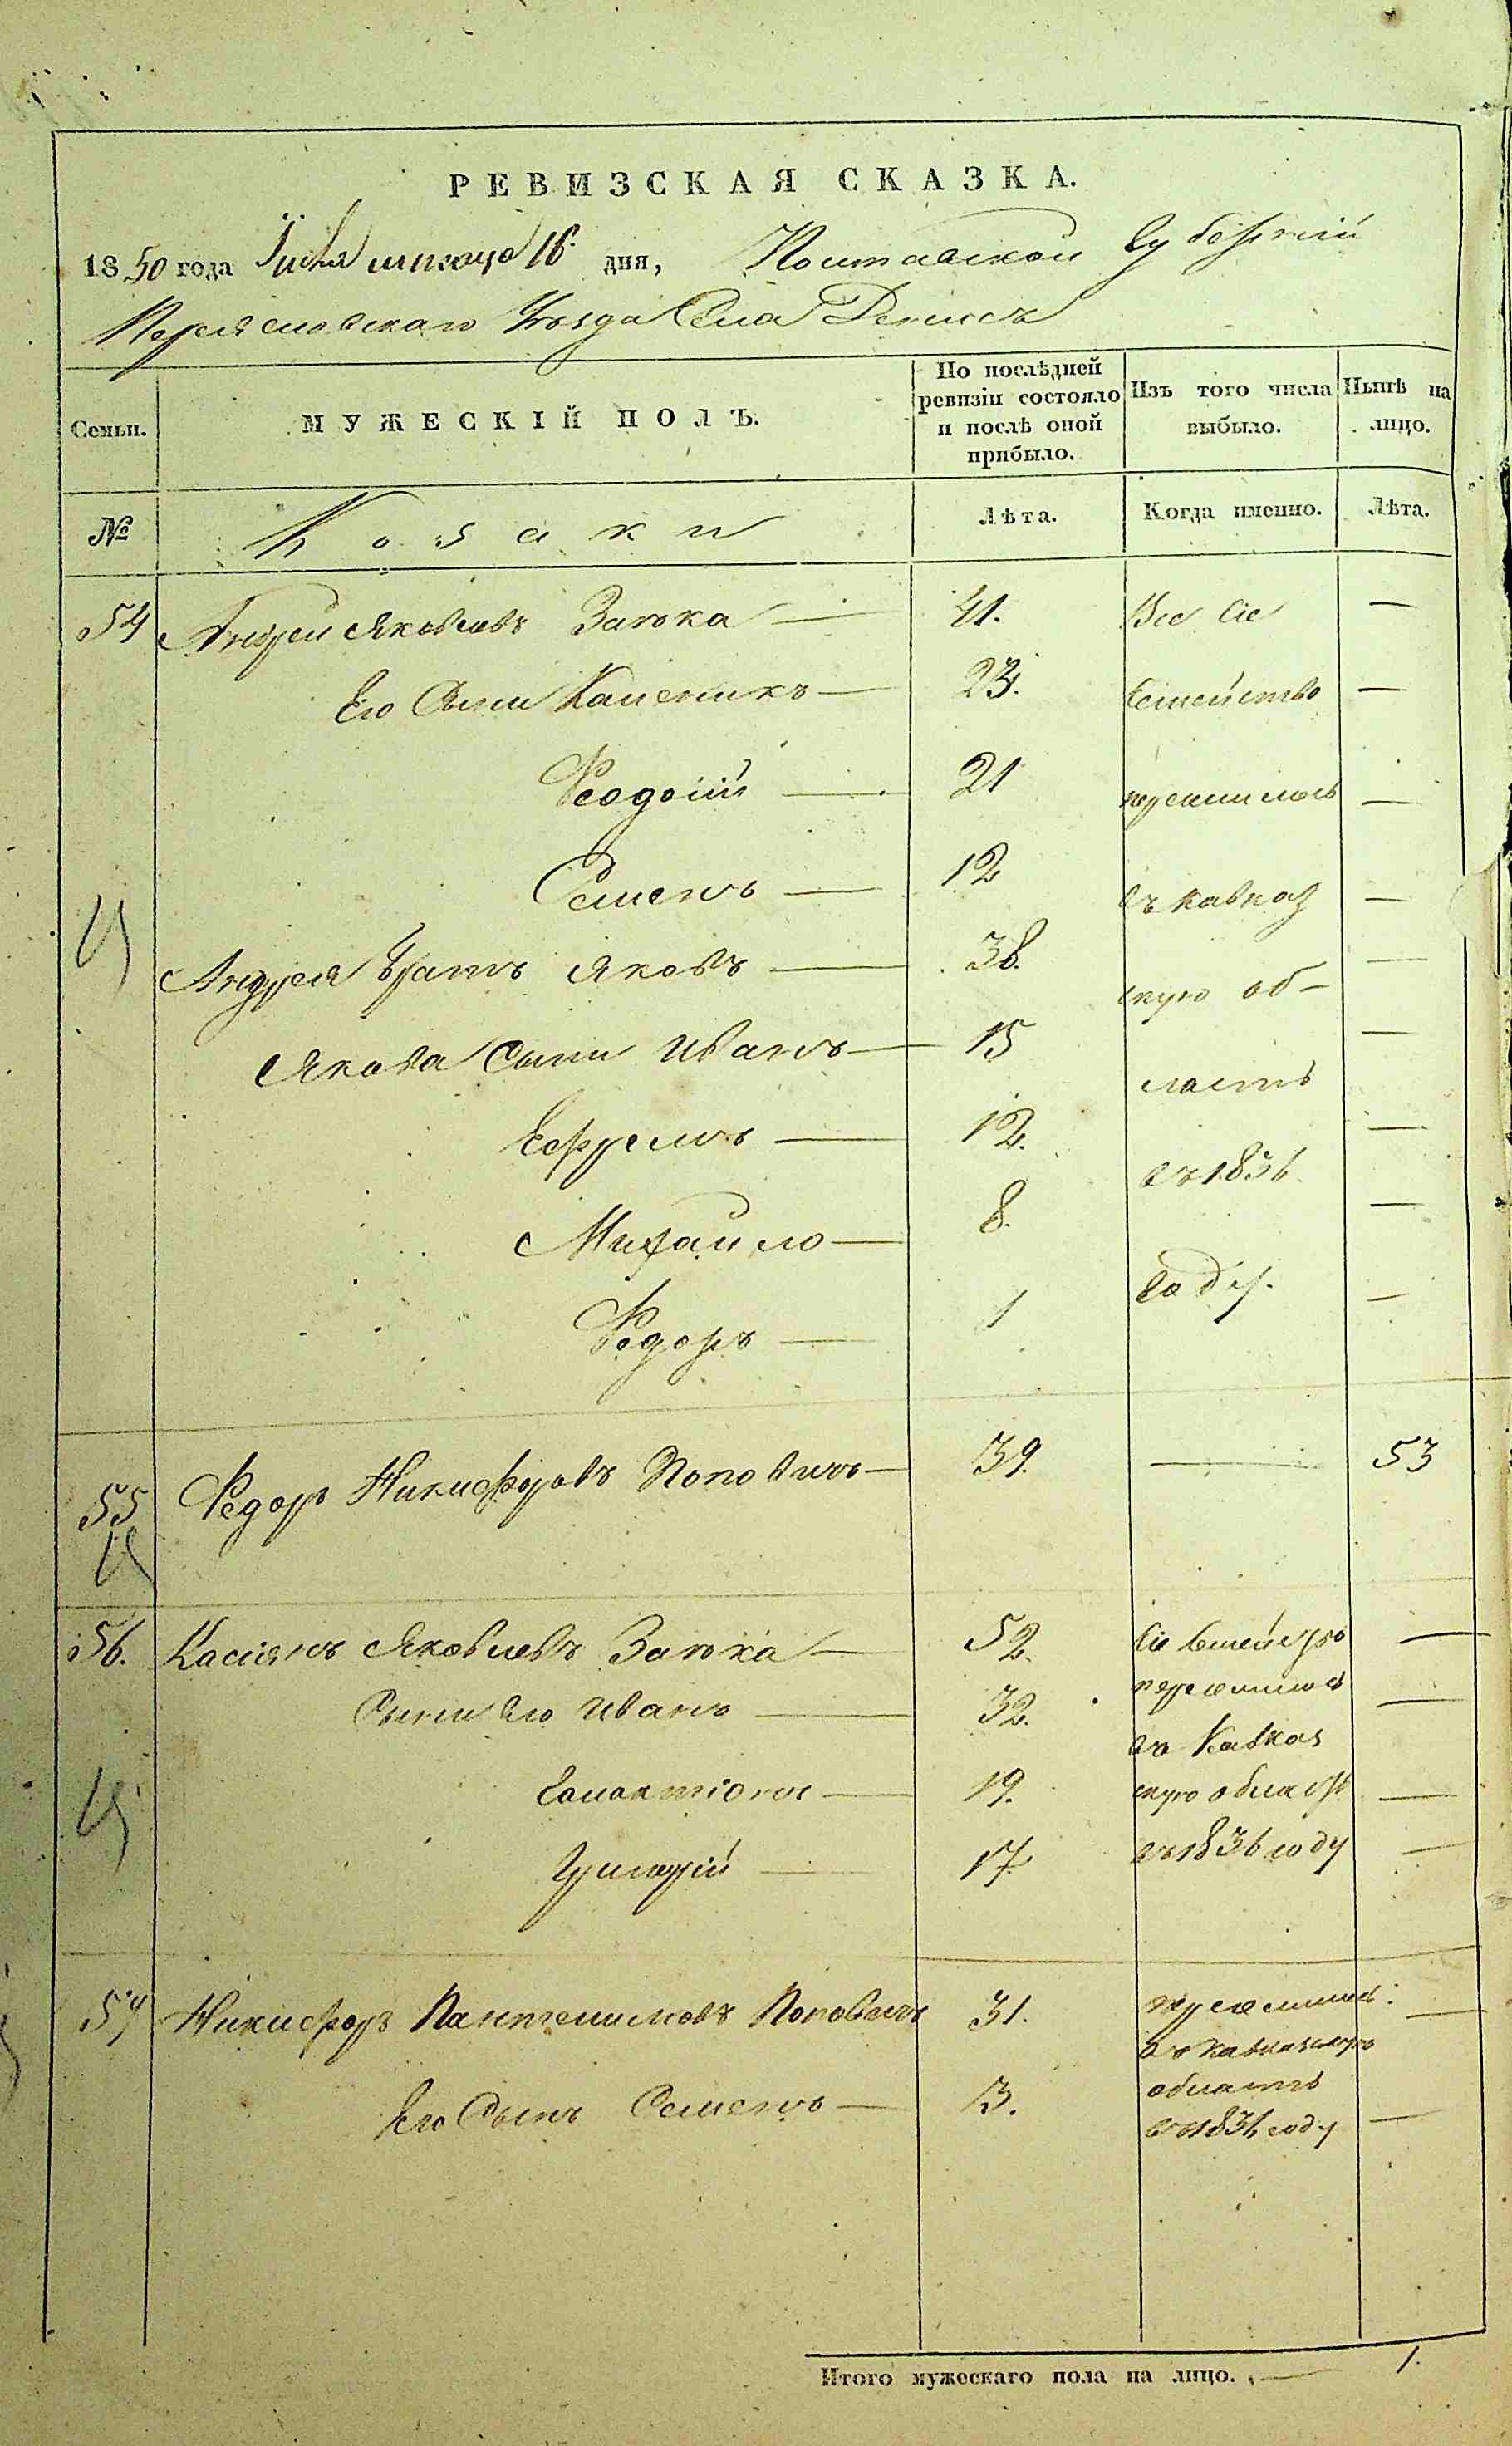 РЕВИЗСКАЯ СКАЗКА.
1850 года Іюня месяца 16 дня, Полтавской Губерніи
Переяславскаго Уѣзда Села Денисъ
Семьи. МУЖЕСКІЙ ПОЛЪ. По послѣдней ревизіи состояло и послѣ оной прибыло. Изъ того числа выбыло. Нынѣ на лицо.
№ Козаки Лѣта. Когда именно. Лѣта.
54 Андрей Яковлевъ Заяка — 41. Все сіе —
Его Сыни Каленикъ — 23. Семейство —
Феодосій — 21 переселилось —
Семенъ — 12 въ Кавказ —
Андрея братъ Яковъ — 38. скую об- —
Якова Сыни Иванъ — 15 ласть —
Ефремъ — 12. въ 1836 —
Михайло — 8. году. —
Федоръ — 1 —
55 Федоръ Никифоровъ Поповичъ — 39. — 53
56. Касіянъ Яковлевъ Заяка — 52. Сіе Семейство —
Сыни Его Иванъ — 32. переселилось —
въ Кавказ
Галактіонъ — 19. скую область —
Григорій — 17. въ 1836 году —
57 Никифоръ Пантелимовъ Поповичъ 31. переселились —
въ Кавказскую
Его Сынъ Семенъ — 3. область
въ 1836 году —
Итого мужескаго пола на лицо. — 1.